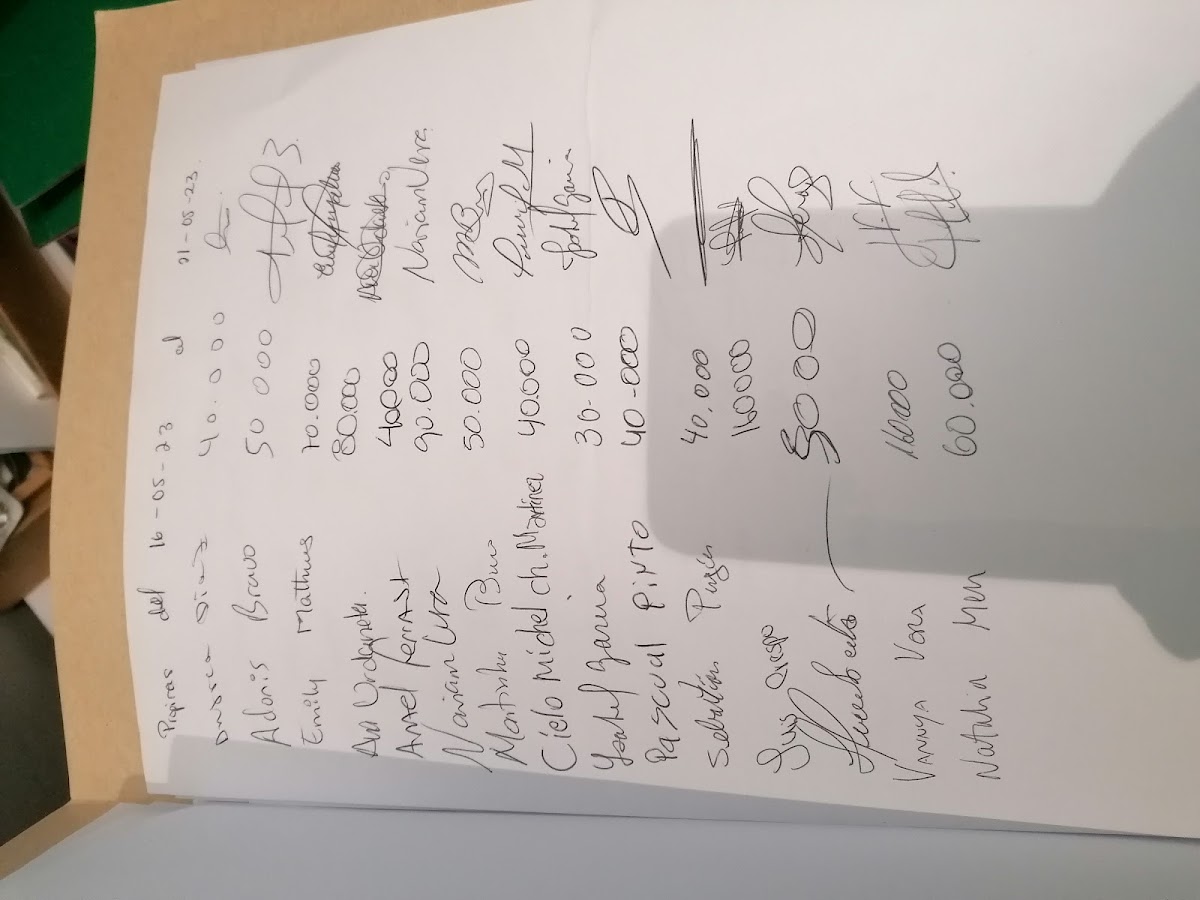 Propinas del 16-05-23 al 21-05-23.
Diaz 40.000
Adonis Bravo 50 000
Emily Matheus 70.000
Ana Urdaneta. 80.000
Anael Ferrast 40000
Mariam Vera 90.000 Mariam Vera.
Martinha 50.000
Cielo Michel ch. Martinez 40.000
Ysabel Garcia 30.000
PASCUAL PINTO 40-000
Sebastian 40.000
Luis Crespo 16000
Humberto 5000
VANNYA VERA 16000
Natalia 60.000